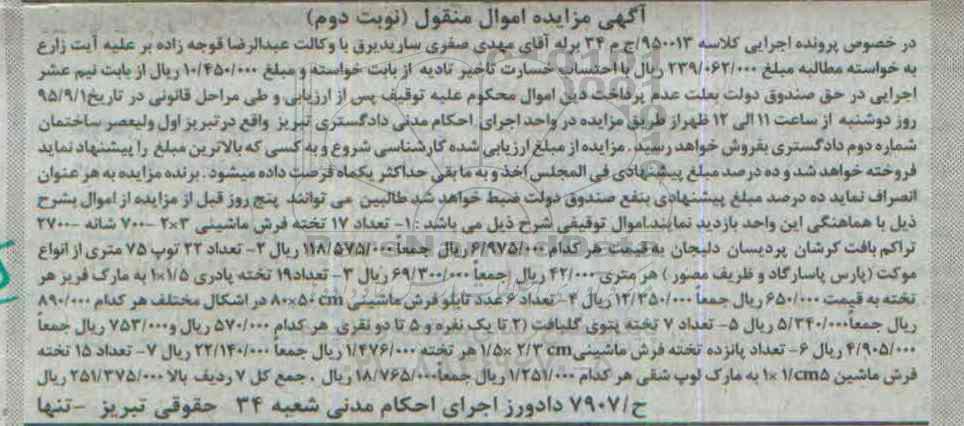 آگهی مزایده اموال منقول (نوبت دوم)
در خصوص پرونده اجرایی کلاسه ۹۵۰۰۱۳/ج م ۳۴ برله آقای مهدی صفری ساریدیرق با وکالت عبدالرضا قوجه زاده بر علیه آیت زارع
به خواسته مطالبه مبلغ ۲۳۹/۰۶۲/۰۰۰ ریال با احتساب خسارت تأخیر تادیه از بابت خواسته و مبلغ ۱۰/۴۵۰/۰۰۰ ریال از بابت نیم عشر
اجرایی در حق صندوق دولت بعلت عدم پرداخت دین اموال محکوم علیه توقیف پس از ارزیابی و طی مراحل قانونی در تاریخ ۹۵/۹/۱
روز دوشنبه از ساعت ۱۱ الی ۱۲ ظهر از طریق مزایده در واحد اجرای احکام مدنی دادگستری تبریز واقع در تبریز اول ولیعصر ساختمان
شماره دوم دادگستری بفروش خواهد رسید . مزایده از مبلغ ارزیابی شده کارشناسی شروع و به کسی که بالاترین مبلغ را پیشنهاد نماید
فروخته خواهد شد و ده درصد مبلغ پیشنهادی فی المجلس اخذ و به مابقی حداکثر یکماه فرصت داده میشود . برنده مزایده به هر عنوان
انصراف نماید ده درصد مبلغ پیشنهادی بنفع صندوق دولت ضبط خواهد شد طالبین می توانند پنج روز قبل از مزایده از اموال بشرح
ذیل با هماهنگی این واحد بازدید نمایند.اموال توقیفی شرح ذیل می باشد : ۱- تعداد ۱۷ تخته فرش ماشینی ۲×۳ -۷۰۰ شانه -۲۷۰۰
تراکم بافت کرشان پردیسان دلیجان به قیمت هر کدام ۶/۹۷۵/۰۰۰ ریال جمعاً ۱۱۸/۵۷۵/۰۰۰ ریال ۲- تعداد ۲۲ توپ ۷۵ متری از انواع
موکت (پارس پاسارگاد و ظریف مصور ) هر متری ۴۲/۰۰۰ ریال جمعاً ۶۹/۳۰۰/۰۰۰ ریال ۳- تعداد۱۹ تخته پادری ۱/۵×۱ به مارک فریز هر
تخته به قیمت ۶۵۰/۰۰۰ ریال جمعاً ۱۲/۳۵۰/۰۰۰ ریال ۴- تعداد ۶ عدد تابلو فرش ماشینی ۸۰×۵۰ cm در اشکال مختلف هر کدام ۸۹۰/۰۰۰
ریال جمعاً۵/۳۴۰/۰۰۰ ریال ۵- تعداد ۷ تخته پتوی گلبافت (۲ تا یک نفره و ۵ تا دو نفری هر کدام ۵۷۰/۰۰۰ ریال و ۷۵۳/۰۰۰ ریال جمعاً
۴/۹۰۵/۰۰۰ ریال ۶- تعداد پانزده تخته فرش ماشینی ۲/۳ cm ×۱/۵ هر تخته ۱/۴۷۶/۰۰۰ ریال جمعاً ۲۲/۱۴۰/۰۰۰ ریال ۷- تعداد ۱۵ تخته
فرش ماشین ۱/cm۵ ×۱ به مارک لوپ شفی هر کدام ۱/۲۵۱/۰۰۰ ریال جمعاً۱۸/۷۶۵/۰۰۰ ریال . جمع کل ۷ ردیف بالا ۲۵۱/۳۷۵/۰۰۰ ریال
ح/۷۹۰۷ دادورز اجرای احکام مدنی شعبه ۳۴ حقوقی تبریز -تنها